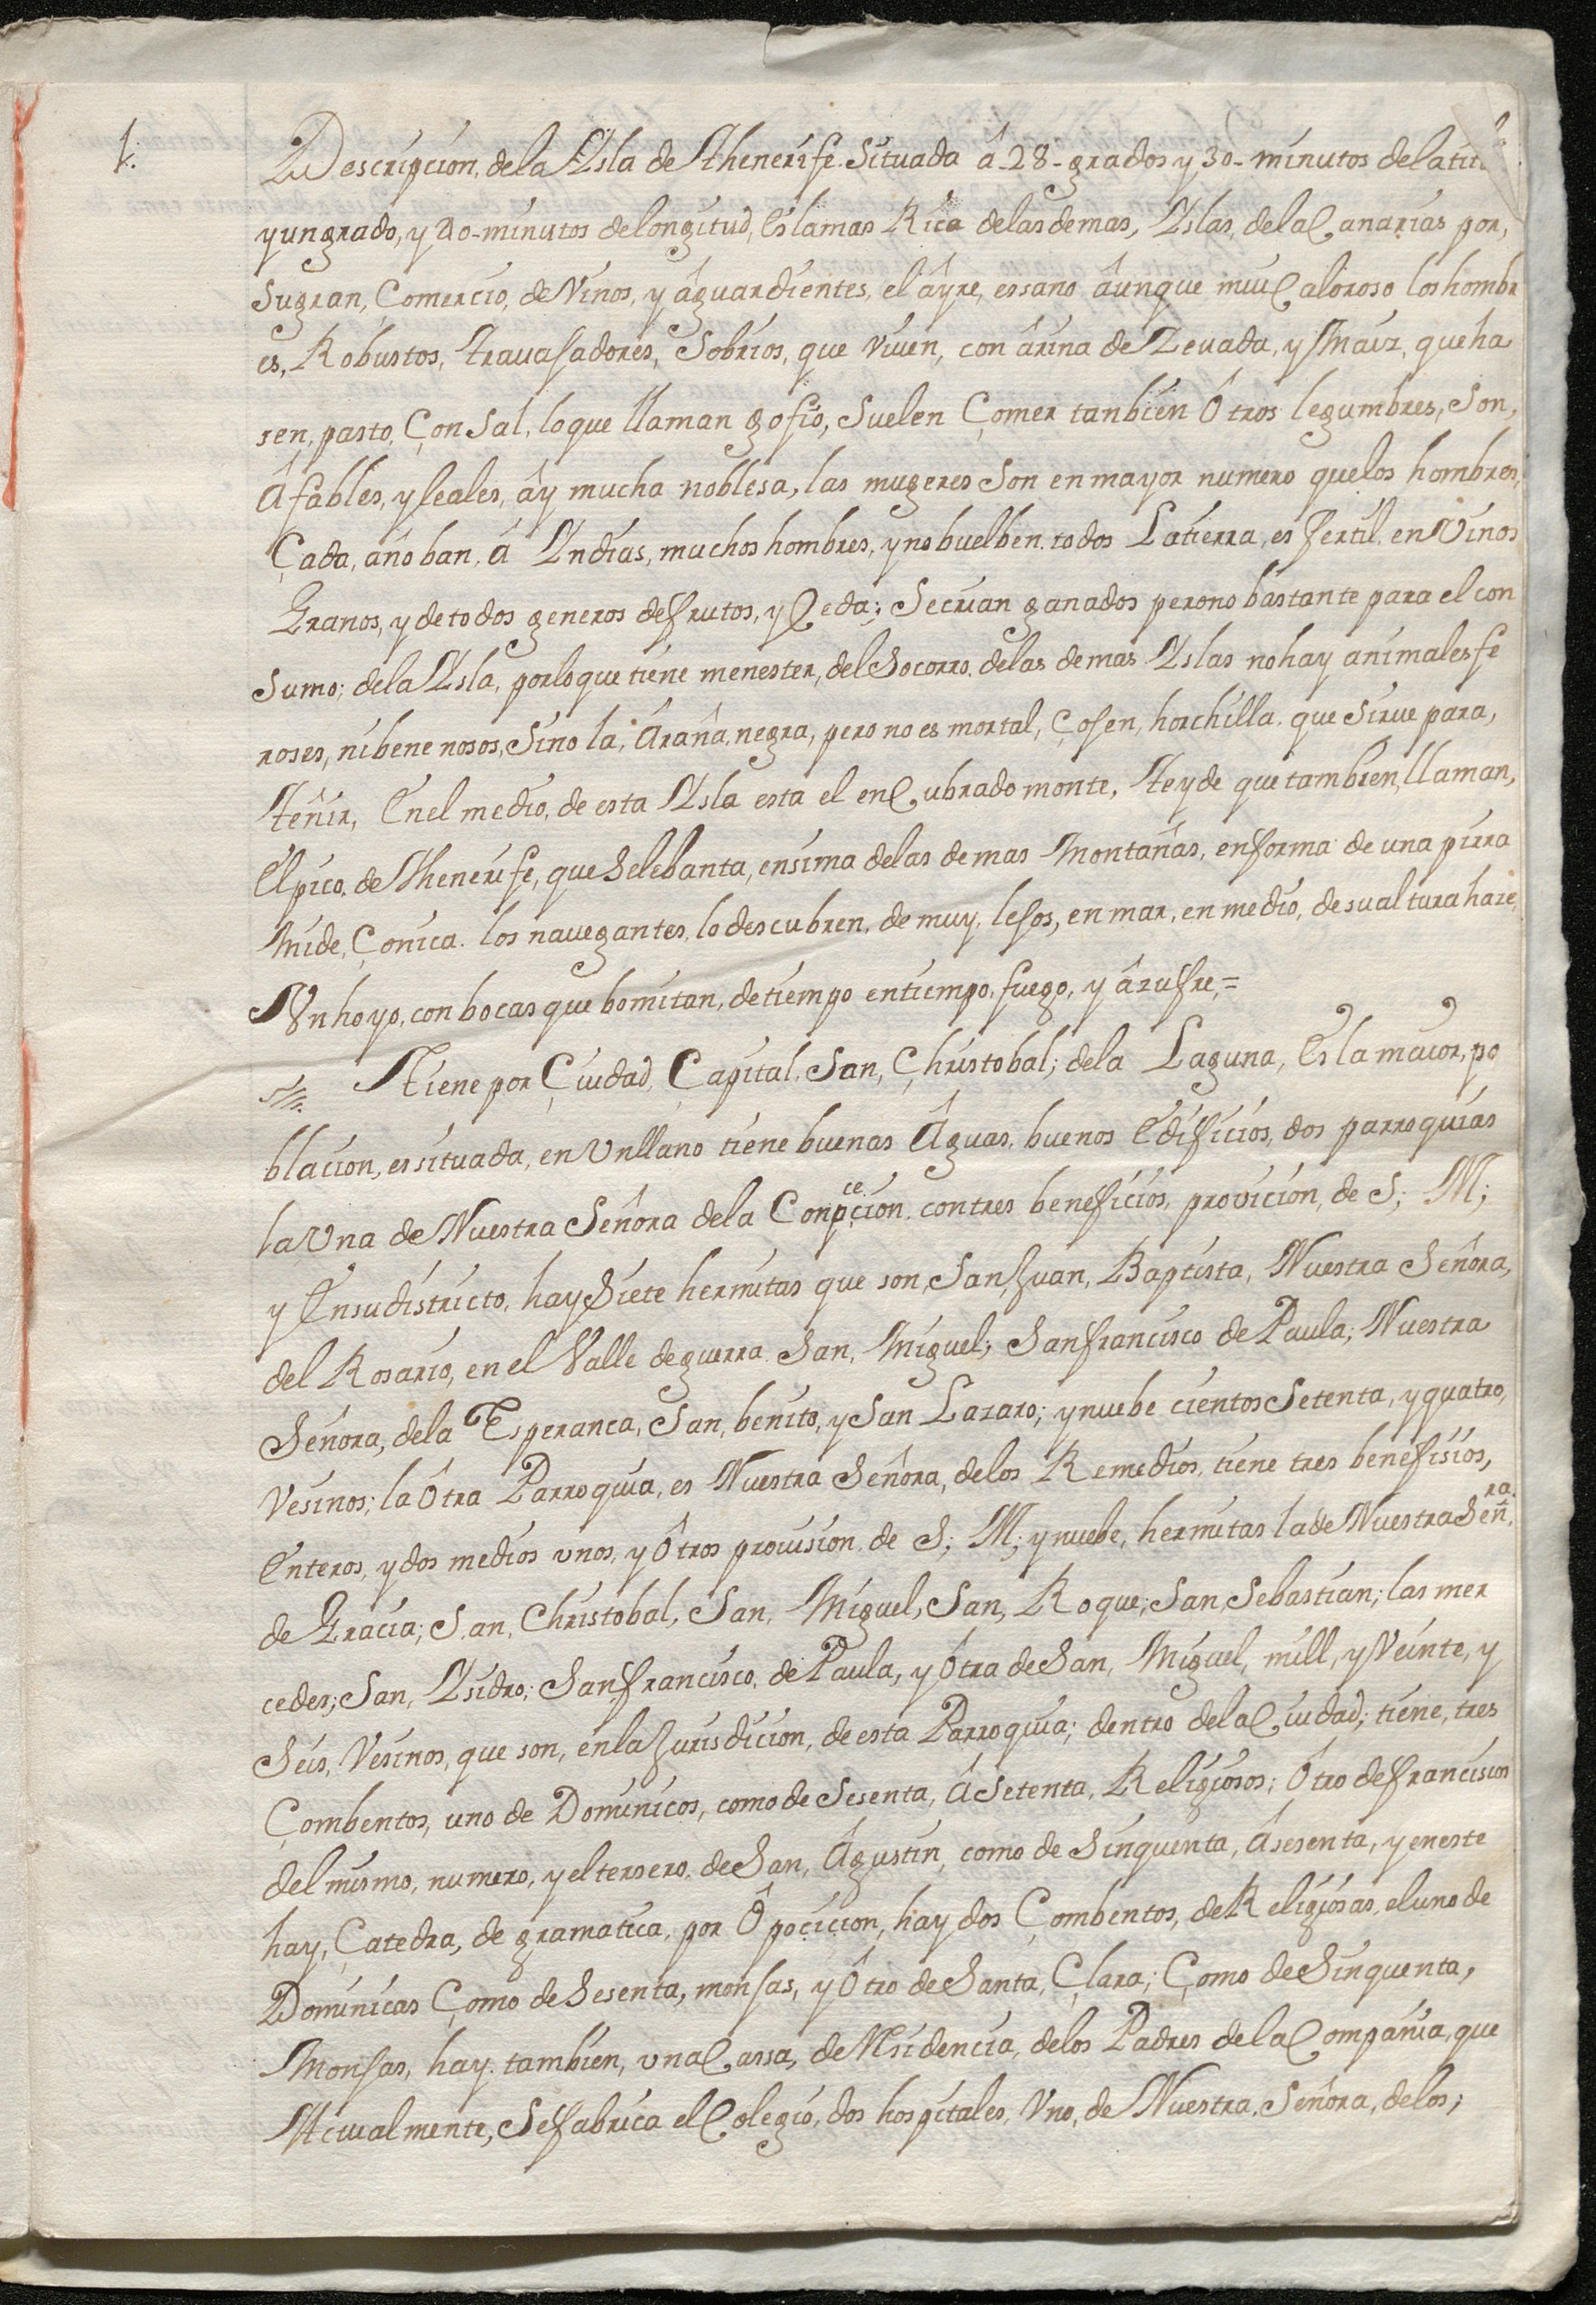 1.
Descripcion, dela Ysla de Thenerife. Situada â 28-grados y 30-minutos de latit
y un grado, y 40-minutos de longitud, Es la mas Rica delas demas, Yslas, dela Canarias por,
Su gran, Comercio, de Vinos, y âguardientes, el âyre, es sano âunque mui Caloroso los hombr
es, Robustos, travasadores, Sobrios, que viven, con ârina de Zevada, y Maiz, que ha
sen, pasto, Con Sal, lo que llaman gofio, Suelen Comer tanbien Ôtros legumbres, Son,
Âfables, y leales, ây mucha noblesa, las mugeres Son en mayor numero quelos hombres,
Cada, año ban, â Yndias, muchos hombres, y no buelben todos La tierra, es fertil, en Vinos
Granos, y de todos generos de frutos, y Ceda; Se crian ganados pero no bastante para el con
Sumo; dela Ysla, por lo que tiene menester, del Socorro, delas demas Yslas no hay animales fe
roses, ni bene nosos, Sino la, Âraña, negra, pero no es mortal, Cosen, horchilla, que Sirve para,
teñir, En el medio, de esta Ysla esta el en Cubrado monte, teyde que tambien, llaman,
El pico, de thenerife, que Se lebanta, en sima delas demas Montañas, en forma de una pirra
mide, Conica. los navegantes, lo descubren, de muy, lesos, en mar, en medio, de su altura haze,
Vn hoyo, con bocas que bomitan, de tiempo en tiempo, fuego, y âzufre,=
Tiene por Ciudad, Capital, San, Christobal; dela Laguna, Es la maior, po
blacion, es situada, en Vn llano tiene buenas Âguas, buenos Edificios, dos parroquias
la Vna de Nuestra Señora dela Conpcecion, con tres beneficios, provicion, de S; M;
y En su districto, hay Siete hermitas que son, San Juan, Baptista, Nuestra Señora,
del Rosario, en el Valle de guerra San, Miguel; San francisco de Paula; Nuestra
Señora, dela Esperanca, San, benito, y San Lazaro; y nuebe cientos Setenta, y quatro,
Vesinos; la Ôtra Parroquia, es Nuestra Señora, delos Remedios, tiene tres benefisios,
Enteros, y dos medios vnos, y Ôtros provision de S; M; y nuebe, hermitas la de Nuestra Señra.
de Gracia; San, Christobal, San, Miguel, San, Roque; San Sebastian; las mer
cedes; San, Ysidro; San francisco, de Paula, y Ôtra de San, Miguel, mill, y Veinte, y
Seis, Vesinos, que son, en la Jurisdicion, de esta Parroquia; dentro dela Ciudad; tiene, tres
Combentos, uno de Dominicos, como de Sesenta, Â Setenta, Religiosos; Ôtro de francisios
del mismo, numero, y el tersero, de San, Âgustin, como de Sinquenta, Âsesenta, y en este
hay, Catedra, de gramatica, por Ôpocicion, hay dos Combentos, de Religiosas, el uno de
Dominicas Como de Sesenta, monsas, y Ôtro de Santa, Clara; Como de Sinquenta,
Monsas, hay, tambien, vna Cassa, de Rsidencia, delos Padres dela Compañia, que
Actualmente, Se fabrica el Colegio, dos hospitales, Vno, de Nuestra, Señora, delos;